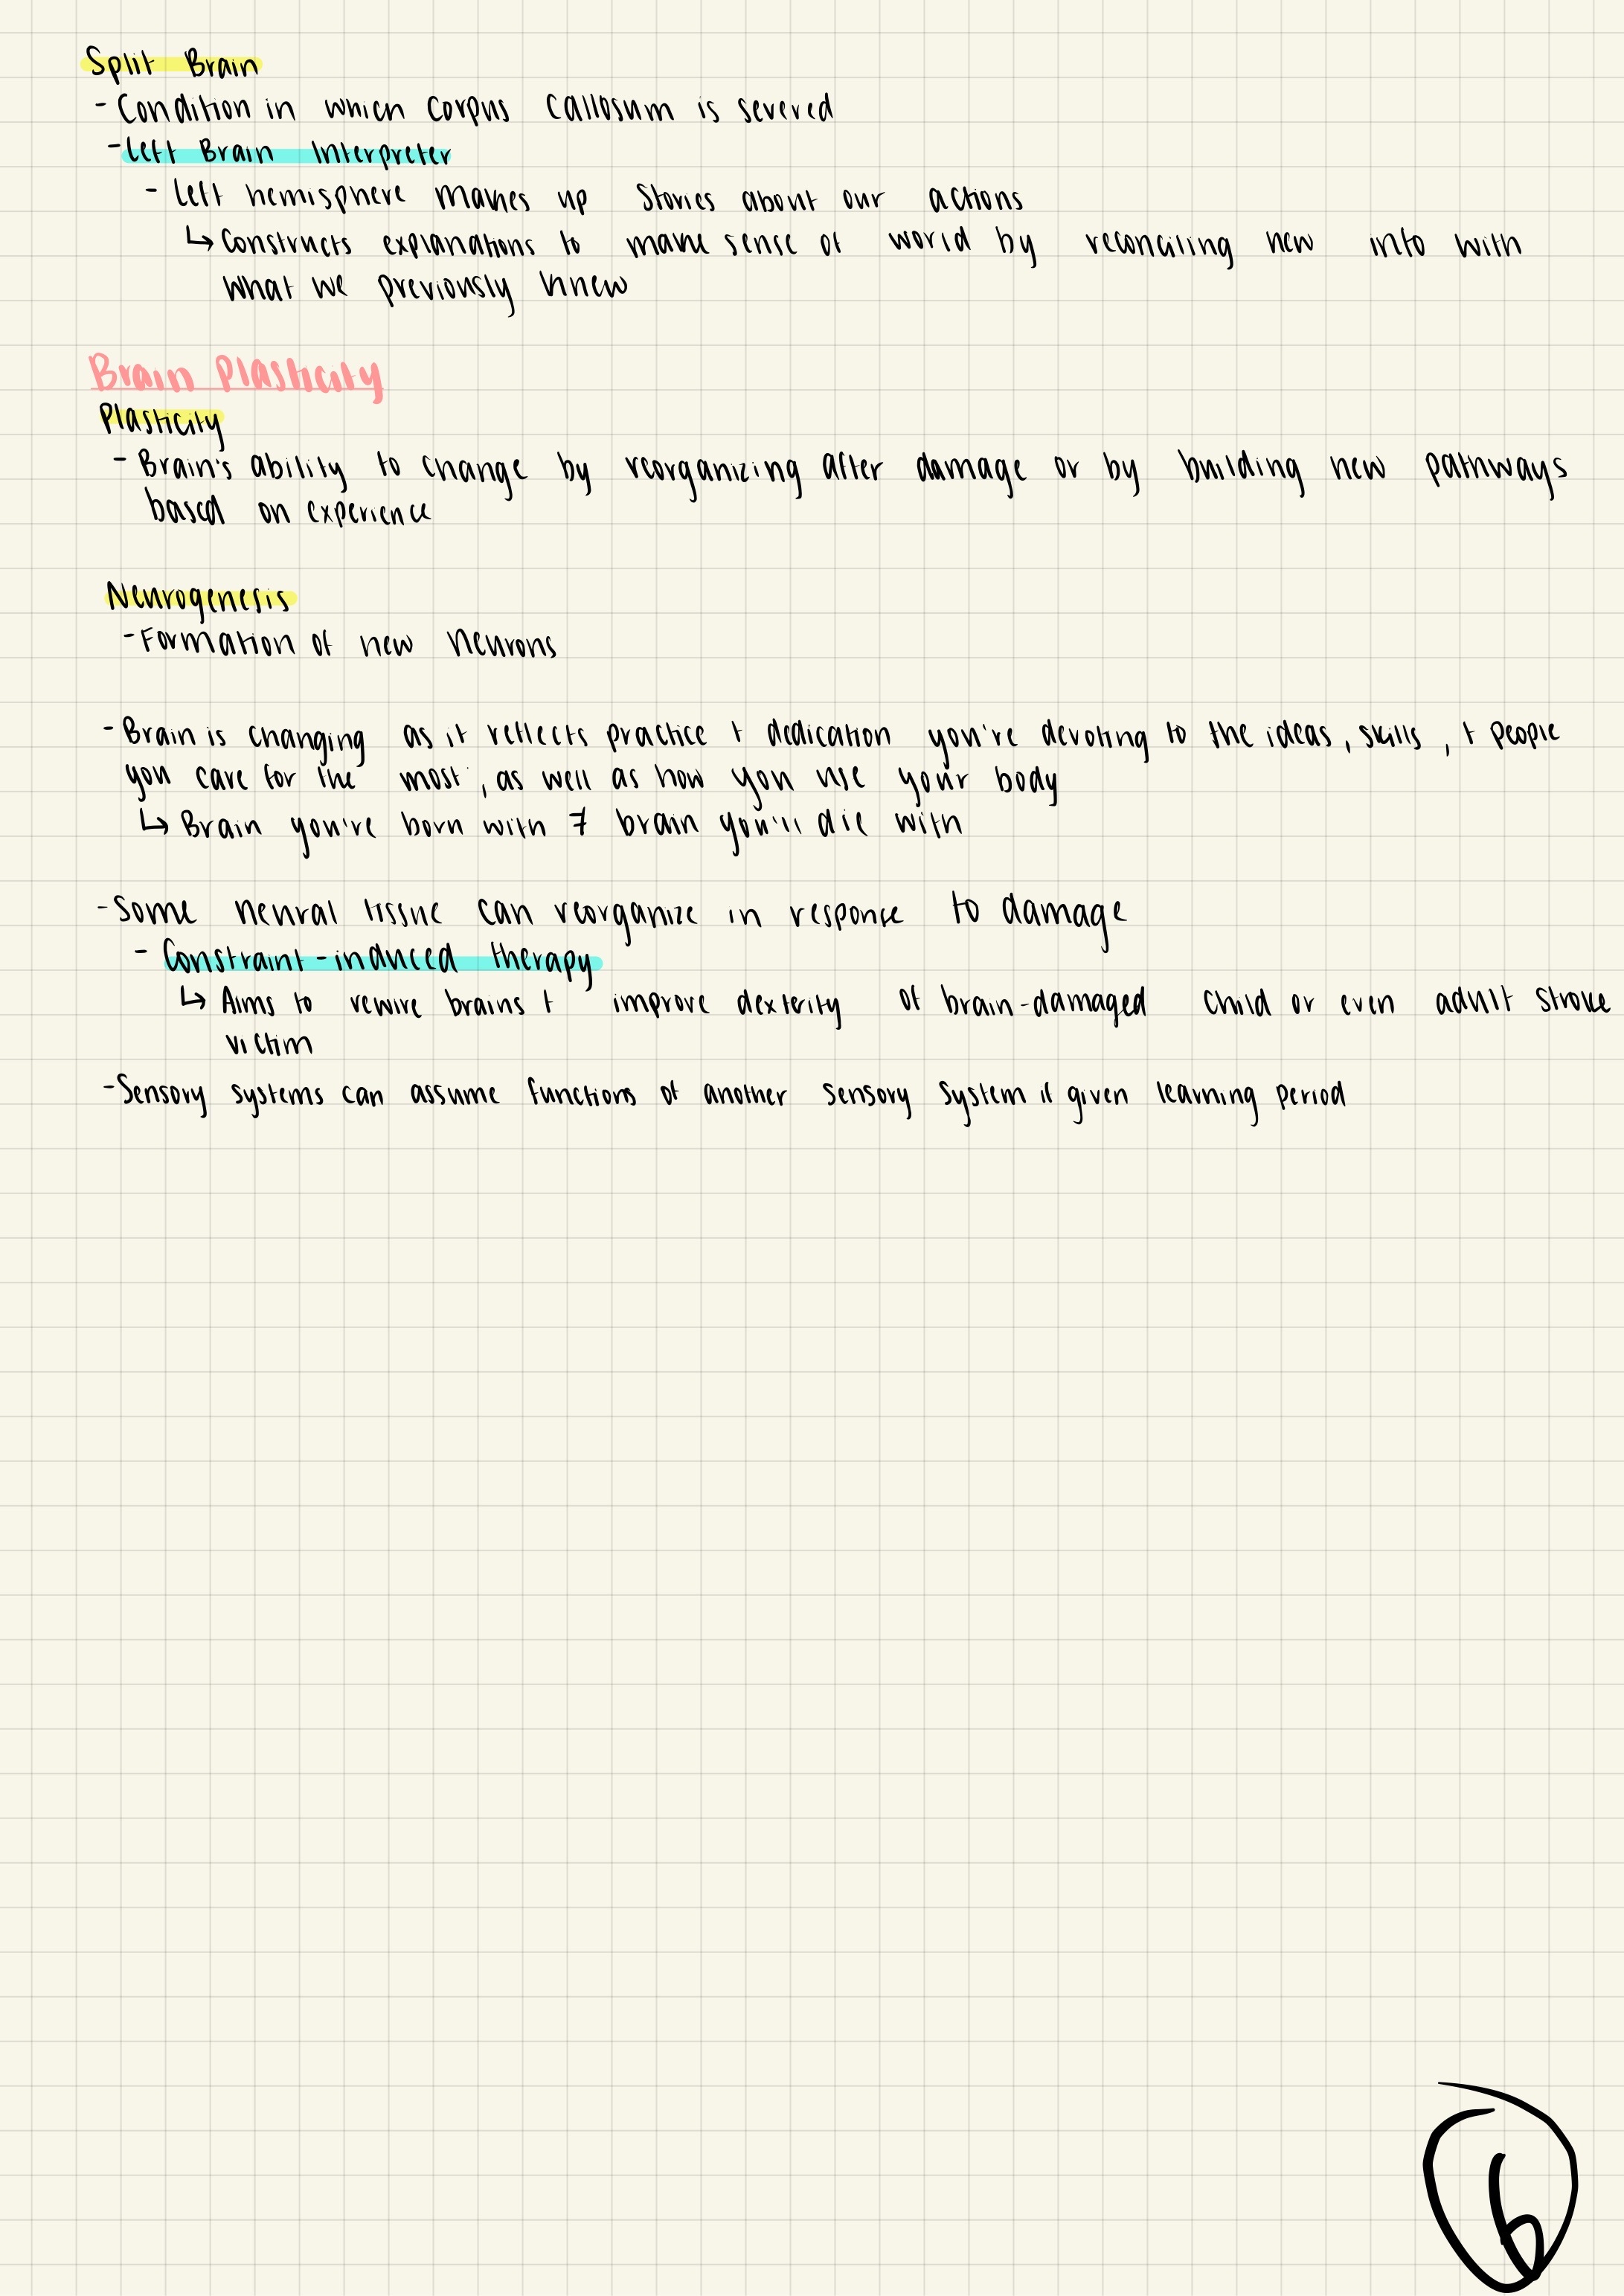 Split Brain
- Condition in which Corpus Callosum is severed
- Left Brain Interpreter
- Left hemisphere makes up stories about our actions
↳ Constructs explanations to make sense of world by reconciling new info with
what we previously knew
Brain Plasticity
Plasticity
- Brain's ability to change by reorganizing after damage or by building new pathways
based on experience
Neurogenesis
- Formation of new neurons
- Brain is changing as it reflects practice + dedication you're devoting to the ideas, skills, + people
you care for the most, as well as how you use your body
↳ Brain you're born with ≠ brain you'll die with
- Some neural tissue can reorganize in response to damage
- Constraint-induced therapy
↳ Aims to rewire brains + improve dexterity of brain-damaged child or even adult stroke
victim
- Sensory systems can assume functions of another sensory system if given learning period
6